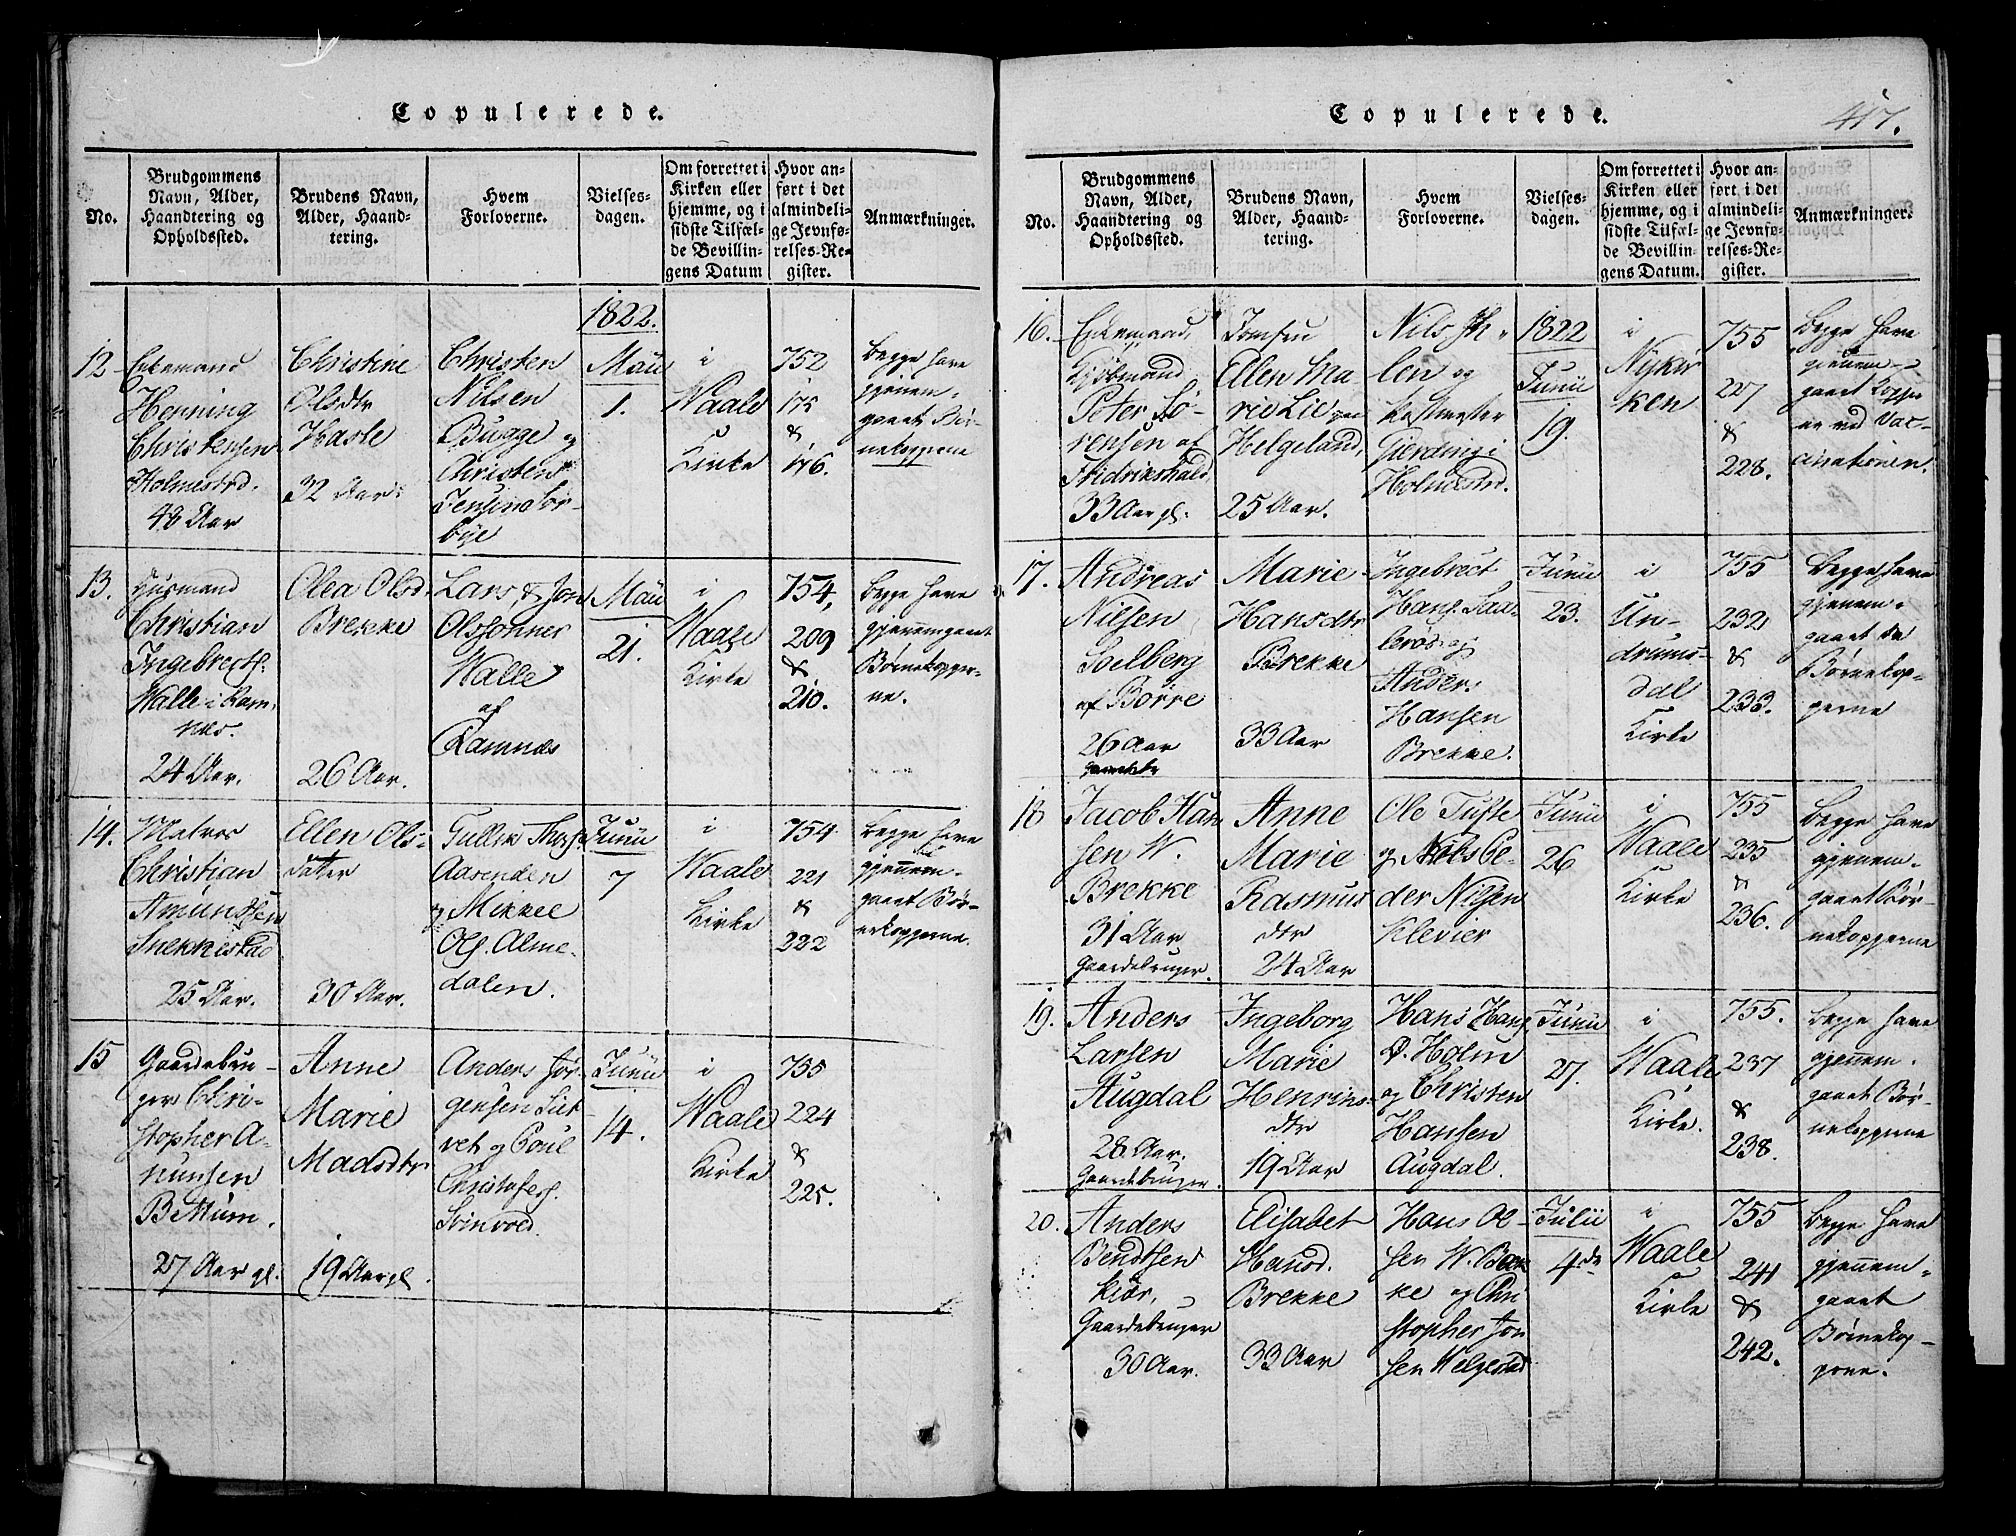 Copulerede.
No.
Brudgommens
Navn, Alder,
Haandtering og
Opholdssted.
Brudens Navn,
Alder, Haand-
tering.
Hvem
Forloverne.
Vielses-
dagen.
Om forrettet i
Kirken eller
hjemme, og i
sidste Tilfæl-
de Bevillin-
gens Datum
Hvor an-
ført i det
almindeli-
ge Jevnfø-
relses-Re-
gister.
Anmærkninger.
12
Enkemand
Henning
Christensen
Holmestrd.
48 Aar
Christine
Olsdtr
Hasle
32 Aar
Christen
Nilsen
Bugge og
Christen
Jensen Sør-
bye
1822.
Maii
1.
i
Waale
Kirke
752
175
&
176.
begge have
gjenem-
gaaet Bør-
nekopperne
13.
Husmand
Christian
Ingebrechts.
Walle i Ram-
næs.
24 Aar.
Olea Olsd.
Brekke
26 Aar.
Lars, & Jon
Olssønner
Walle
af
Ramnæs
Maii
21.
i
Waale
Kirke
754,
209
&
210.
begge have
gjenemgaaet
Børnekopper-
ne.
14.
Matros
Christian
Amundsen
Snekkestad
25 Aar.
Ellen Ols-
datter
30 Aar.
Tullik Thors.
Aasenden
og Mikkel
Ols. Alme-
dalen.
Junii
7
i
Waale
Kirke
754
221
&
222
begge have
gjennem-
gaaet Bør-
nekopperne.
15
Gaardebru-
ger Chri-
stopher A-
nunsen
Bettum.
27 Aar gl.
Anne
Marie
Madsdtr
19 Aar gl.
Anders Jør-
gensen
vet og Poul
Christofers.
Svinvold.
Junii
14.
i
Waale
Kirke
755
224
&
225.
Copulerede.
417.
No.
Brudgommens
Navn, Alder,
Haandtering og
Opholdssted.
Brudens Navn,
Alder, Haand-
tering.
Hvem
Forloverne.
Vielses-
dagen.
Om forrettet i
Kirken eller
hjemme, og i
sidste Tilfæl-
de Bevillin-
gens Datum.
Hvor an-
ført, i det
almindeli-
ge Jevnfø-
relses-Re-
gister.
Anmærkninger.
16.
Enkemand,
Kjøbmand
Peter Sø-
rensen af
Fridrikshald,
33 Aar gl.
Jomfru
Ellen Ma-
rie Lie paa
Helgeland,
25 Aar.
Nils Th-
len og
Gierding i
Holmestrd.
1822
Junii
19.
i
Nykir
ken
755
227
&
228.
begge have
gjennem-
gaaet Kopper
ne ved Vac-
cinationen.
17.
Andreas
Nilsen
Solberg
af Borre
26 Aar
Marie
Hansdtr
Brekke
33 Aar
Ingebrect
Hans. Saa-
lerød og
Anders
Hansen
Brekke.
Junii
23.
i
Un-
drums-
dal
Kirke
755
232
&
233.
Begge have
gjenem-
gaaet de
Børnekop-
perne
18
Jacob Han
sen W.
Brekke
31 Aar
Gaardebruger.
Anne
Marie
Rasmus
dtr
24 Aar
Ole Tufte
og Nils Pe-
der Nilsen
Klevier
Junii
26
i
Waale
Kirke
755
235
&
236.
Begge have
gjenem-
gaaet Bør-
nekopperne
19.
Anders
Larsen
Augdal
28 Aar.
Gaardebruger.
Ingeborg
Marie
Henriks-
dtr
19 Aar
Hans Hans
D. Holm
og Christen
Hansen
Augdal.
Junii
27.
i
Waale
Kirke.
755.
237
&
238.
Begge have
gjennem-
gaaet Bør-
nekopperne
20.
Anders
Bendtsen
Kiær,
Gaardebruger
30 Aar.
Elisabet
Hansd.
Brekke
33 Aar
Hans Ol-
sen W. Bæk
ke og Chri
stopher Jon
sen Helgestad
Julii
4de
i
Waale
Kirke
755
241
&
242.
Begge have
gjennem-
gaaet
Børnekop-
perne.